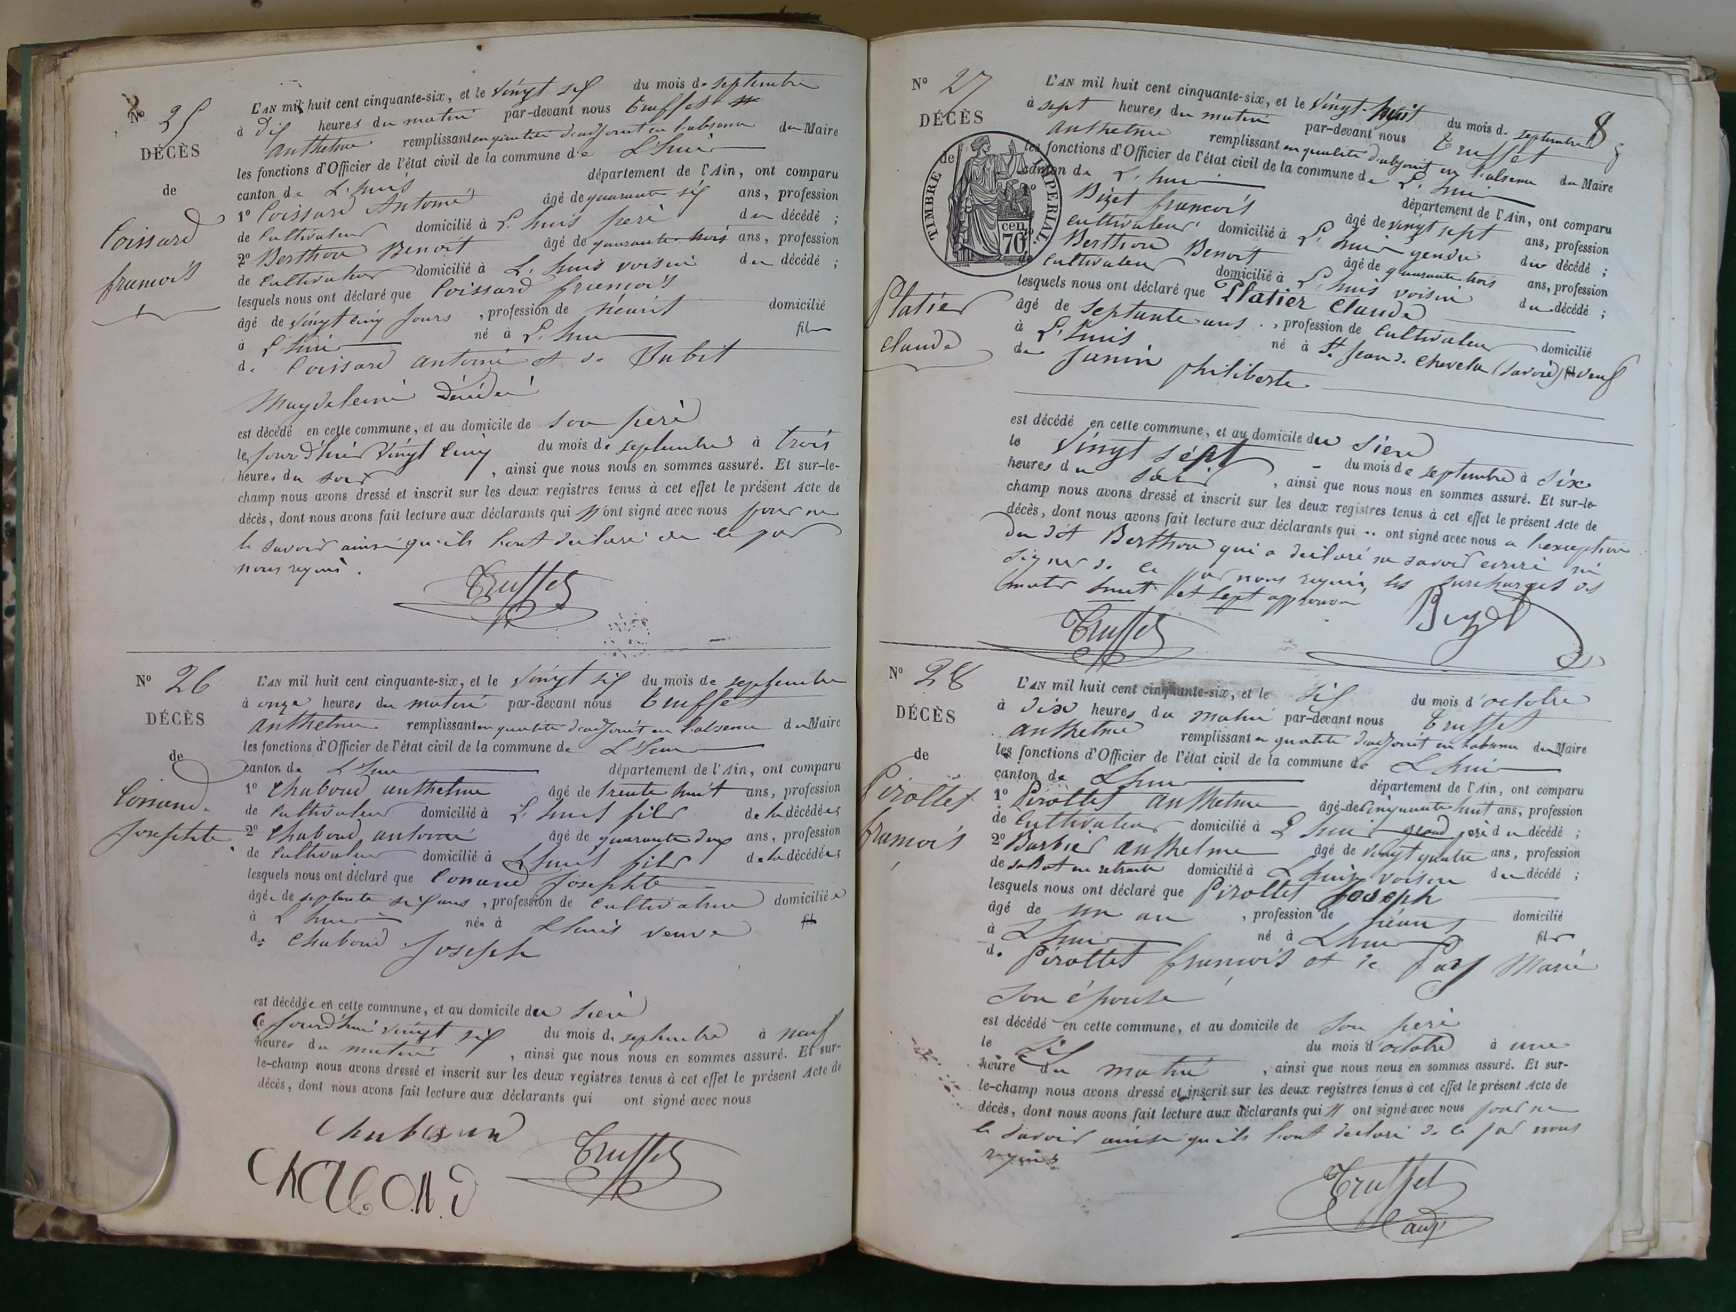 No 25
DÉCÈS
de
Coissard
francois
L'AN mil huit cent cinquante-six, et le vingt six du mois de septembre
à dix heures du matin par-devant nous Truffet
anthelme remplissant en qualité d'adjoint en l'absence du Maire
les fonctions d'Officier de l'état civil de la commune de L'huis
canton de L'huis département de l'Ain, ont comparu
1º Coissard Antoine âgé de quarante six ans, profession
de Cultivateur domicilié à L'huis père du décédé ;
2º Berthou Benoit âgé de quarante trois ans, profession
de Cultivateur domicilié à L'huis voisin du décédé ;
lesquels nous ont déclaré que Coissard francois
âgé de vingt cinq jours , profession de néant domicilié
à L'huis né à L'huis fils
de Coissard antoine et de Jubit
Magdeleine Décédée
est décédé en cette commune, et au domicile de son père
le jour d'hier vingt cinq du mois de septembre à trois
heures du soir , ainsi que nous nous en sommes assuré. Et sur-le-
champ nous avons dressé et inscrit sur les deux registres tenus à cet effet le présent Acte de
décès, dont nous avons fait lecture aux déclarants qui n'ont signé avec nous pour ne
le savoir ainsi qu'ils l'ont déclaré de ce par
nous requis.
Truffet
No 26
DÉCÈS
de
Conand
Josephte
L'AN mil huit cent cinquante-six, et le vingt six du mois de septembre
à onze heures du matin par-devant nous Truffet
anthelme remplissant en qualité d'adjoint en l'absence du Maire
les fonctions d'Officier de l'état civil de la commune de L'huis
canton de L'huis département de l'Ain, ont comparu
1º Chaboud anthelme âgé de trente huit ans, profession
de Cultivateur domicilié à L'huis fils de la décédée
2º Chaboud antoine âgé de quarante deux ans, profession
de Cultivateur domicilié à L'huis fils de la décédée
lesquels nous ont déclaré que Conand Josephte
âgée de septante six ans , profession de Cultivatrice domiciliée
à L'huis née à L'huis veuve fil
de Chaboud Joseph
est décédée en cette commune, et au domicile du sien
le jourd'hui vingt six du mois de septembre à neuf
heures du matin , ainsi que nous nous en sommes assuré. Et sur-
le-champ nous avons dressé et inscrit sur les deux registres tenus à cet effet le présent Acte de
décès, dont nous avons fait lecture aux déclarants qui ont signé avec nous
Truffet
No 27
DÉCÈS
de
TIMBRE IMPÉRIAL
cen
70
Platier
claude
8
L'AN mil huit cent cinquante-six, et le vingt huit du mois de septembre
à sept heures du matin par-devant nous Truffet
anthelme remplissant en qualité d'adjoint en l'absence du Maire
les fonctions d'Officier de l'état civil de la commune de L'huis
canton de L'huis département de l'Ain, ont comparu
Bizet francois âgé de vingt sept ans, profession
Cultivateur domicilié à L'huis gendre du décédé ;
Berthou Benoit âgé de quarante trois ans, profession
Cultivateur domicilié à L'huis voisin du décédé ;
lesquels nous ont déclaré que Platier Claude
âgé de septante ans , profession de Cultivateur domicilié
à L'huis né à St Jean de Chevelu (Savoie) fil veuf
de Janin philiberte
est décédé en cette commune, et au domicile du sien
le vingt sept du mois de septembre à six
heures du soir , ainsi que nous nous en sommes assuré. Et sur-le-
champ nous avons dressé et inscrit sur les deux registres tenus à cet effet le présent Acte de
décès, dont nous avons fait lecture aux déclarants qui ont signé avec nous a l'exception
du dit Berthou qui a déclaré ne savoir ecrire ni
signer de ce par nous requis, les surcharges des
mots huit et sept approuvé
Truffet
No 28
DÉCÈS
de
Pirollet
francois
L'AN mil huit cent cinquante-six, et le six du mois d'octobre
à dix heures du matin par-devant nous Truffet
anthelme remplissant en qualité d'adjoint en l'absence du Maire
les fonctions d'Officier de l'état civil de la commune de L'huis
canton de L'huis département de l'Ain, ont comparu
1º Pirollet anthelme âgé de Cinquante huit ans, profession
de Cultivateur domicilié à L'huis grand père du décédé ;
2º Barbier anthelme âgé de vingt quatre ans, profession
de soldat en retraite domicilié à L'huis voisin du décédé ;
lesquels nous ont déclaré que Pirollet Joseph
âgé de un an , profession de néant domicilié
à L'huis né à L'huis fils
de Pirollet francois et de Marie
son épouse
est décédé en cette commune, et au domicile de son père
le six du mois d'octobre à une
heure du matin , ainsi que nous nous en sommes assuré. Et sur-
le-champ nous avons dressé et inscrit sur les deux registres tenus à cet effet le présent Acte de
décès, dont nous avons fait lecture aux déclarants qui n'ont signé avec nous pour ne
le savoir ainsi qu'ils l'ont déclaré de ce par nous
requis
Truffet
adj